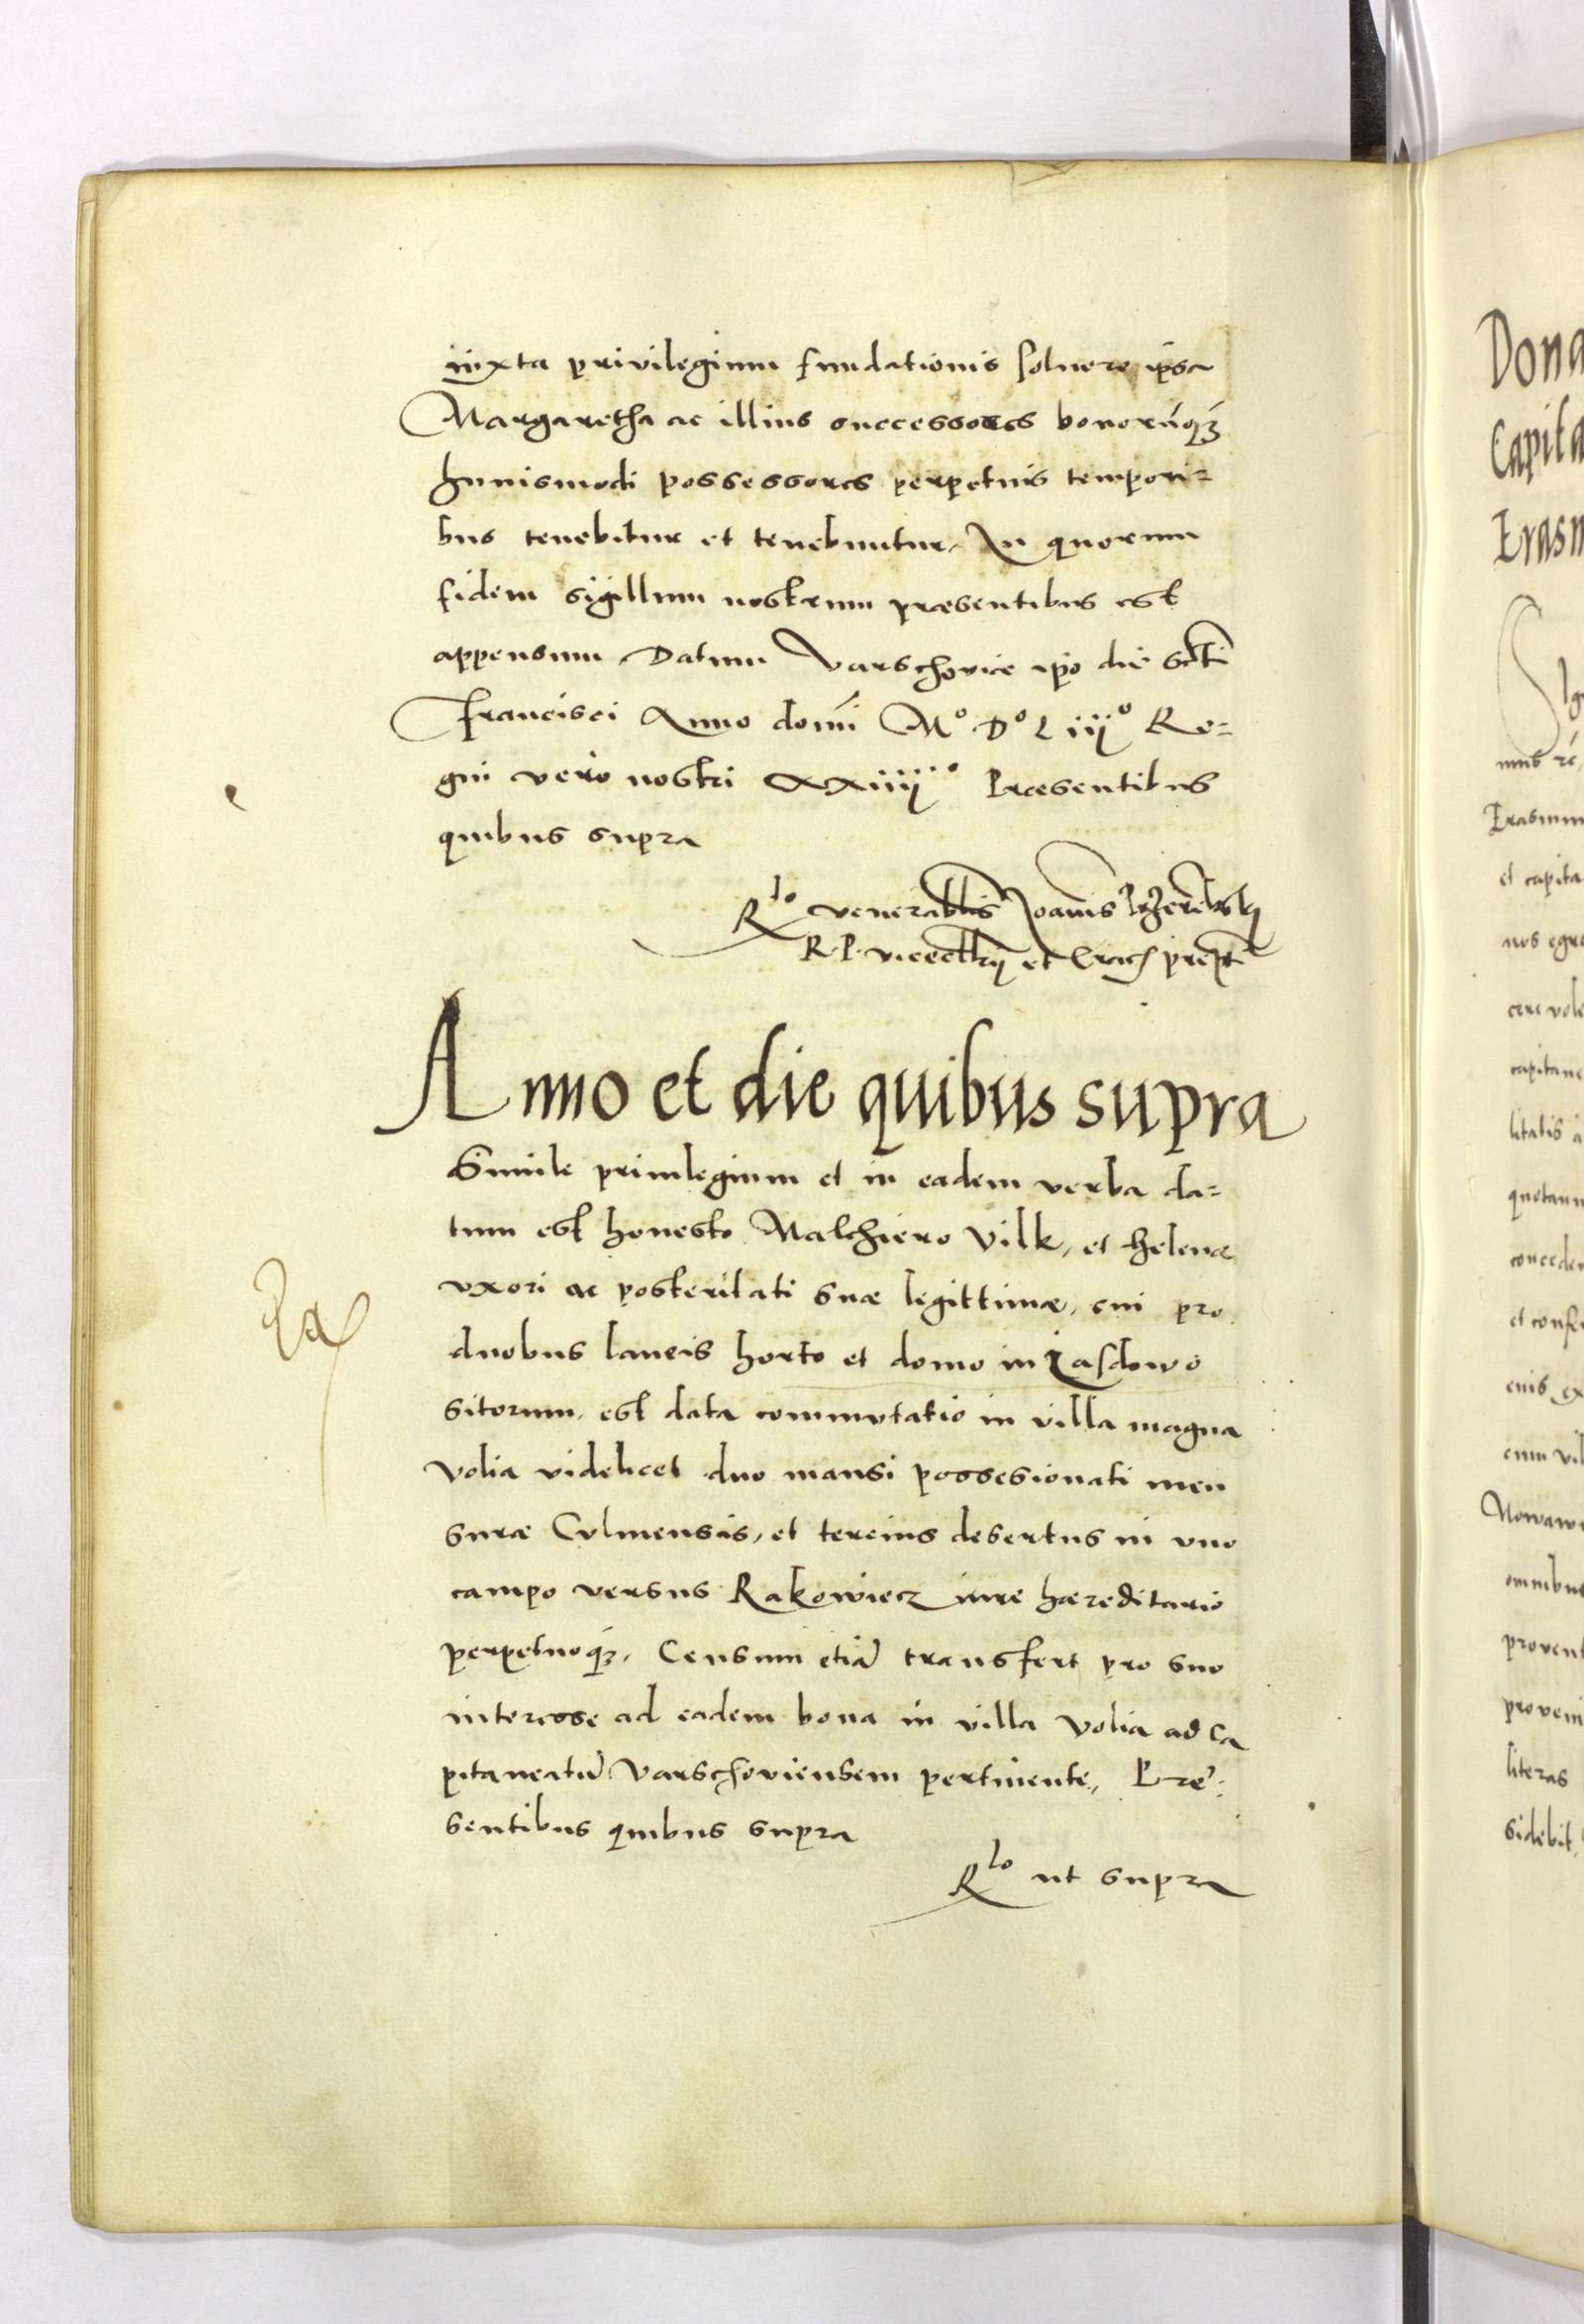 iuxta privilegium fundationis soluere ipsa
Margaretha ac illius successores bonorūq3
huiusmodi possessores perpetuis tempori=
bus tenebitur et tenebuntur, In quorum
fidem sigillum nostrum præsentibus est
appensum Datum Varschoviæ ipō die scti
Francisci Anno domi Mº Dº L iiijº Re=
gni vero nostri XXiiiijº Præsentibus
quibus supra
Rlo venerablis Joanis Przerebski
R. P. viceclrij et præpti
Anno et die quibus supra
Simile privilegium et in eadem verba da=
tum est honesto Malchiero Vilk, et Helenæ
vxori ac posteritati suæ legittimæ, cui pro
duobus laneis horto et domo in Iasdowo
sitorum, est data commvtatio in villa magna
Volia videlicet duo mansi possesionati men
suræ Culmensis, et tercius desertus in vno
campo versus Rakowiecz iure hæreditario
perpetuoq3, Censum etiā transfert pro suo
interesse ad eadem bona in villa Volia ad ca
pitaneatū Varschoviensem pertinente, Præ=
sentibus quibus supra
Rlo ut supra
Dona
Capita
Erasm
nus rē
Erasmum
et capita
nos egre
cere vole
capitane
litatis
quotann
conceden
et confe
enis ex
cum vil
Nowawi
omnibus
provent
proveni
literas
sidebit